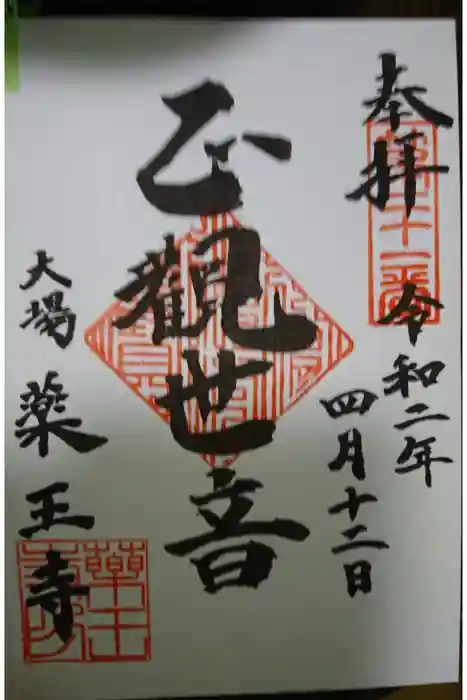 奉拝
第十一番
令和二年
四月十二日
正観世音
大場
薬王寺